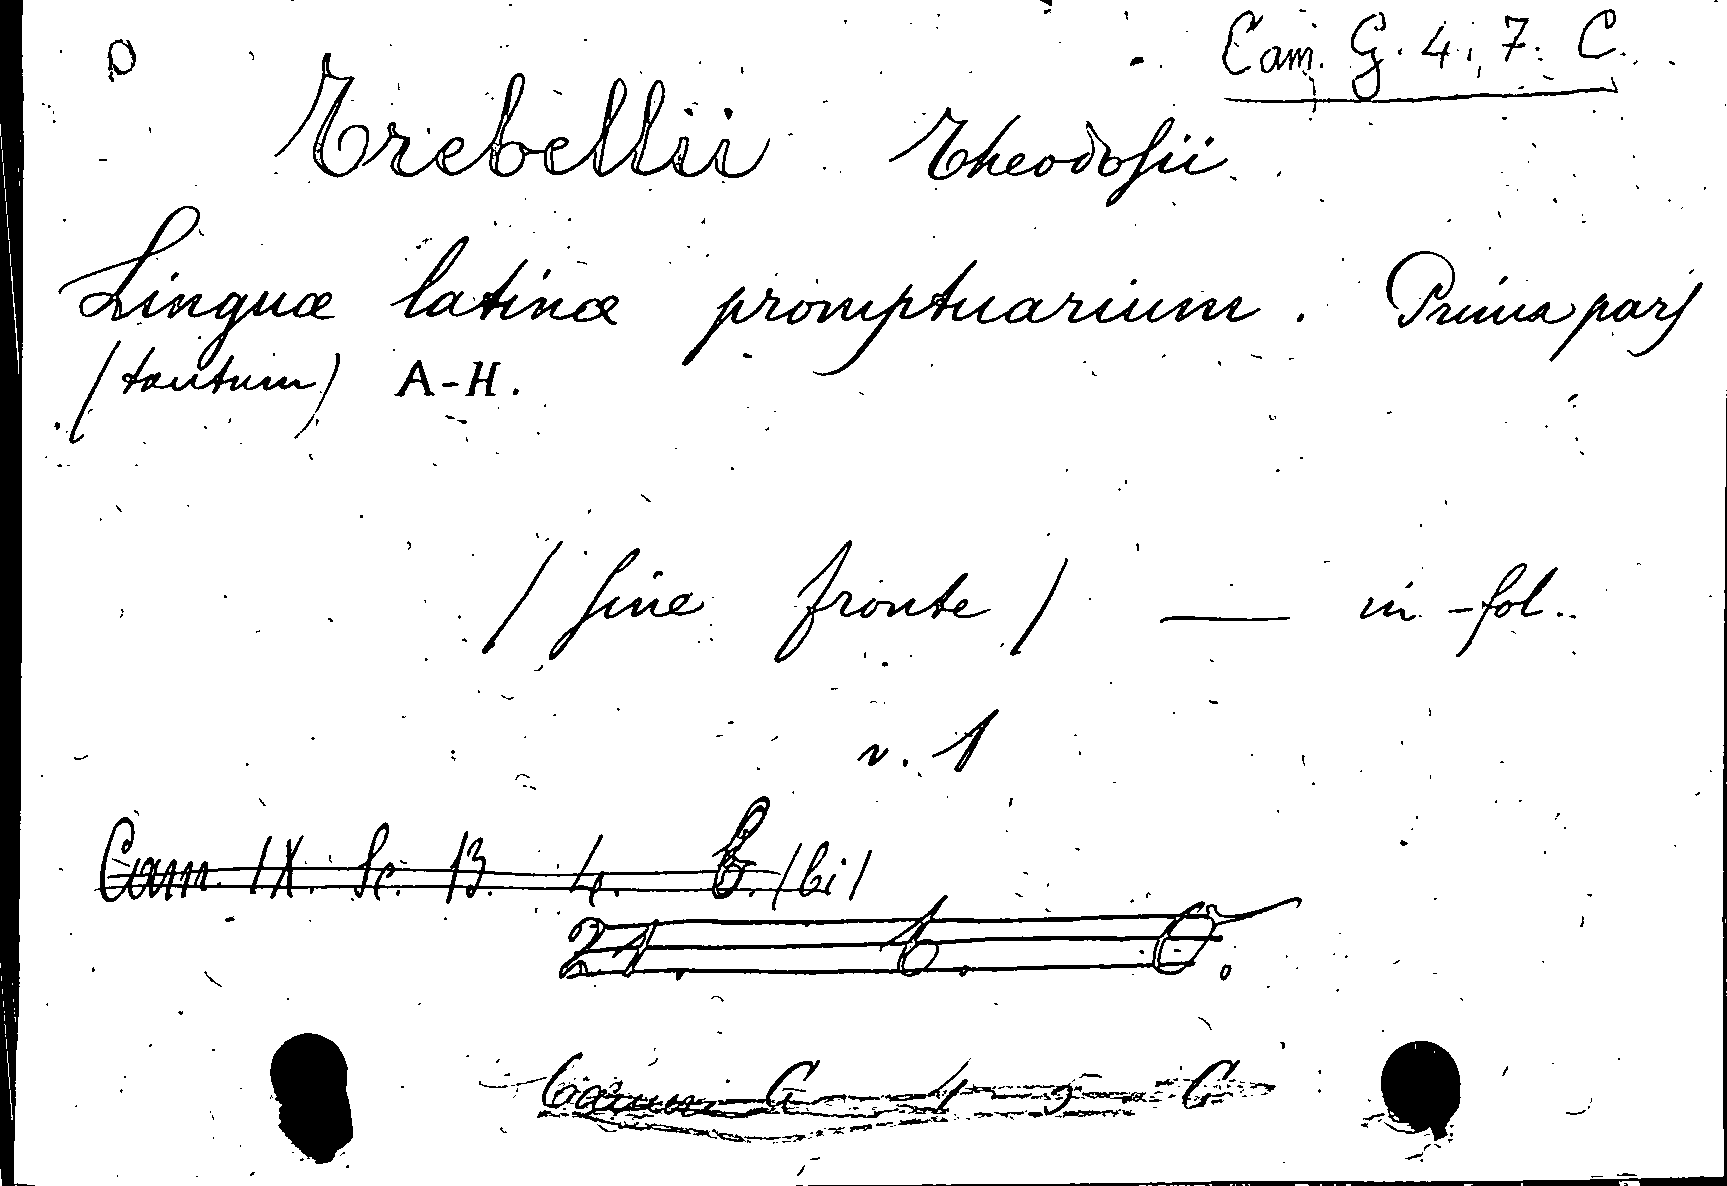 D
Cam. G. 4., 7. C.
Trebellii Theodosii
Linguæ latinæ promptuarium. Prima pars
(tantum) A-H.
(sine fronte) — in-fol.
v. 1
Cam. IX. Sc. 13. 4. /bi/
21. 6. C.
Camm. G 4 5 C